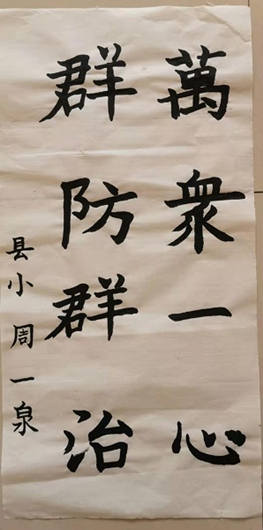 萬衆一心
群防群治
县小周一泉